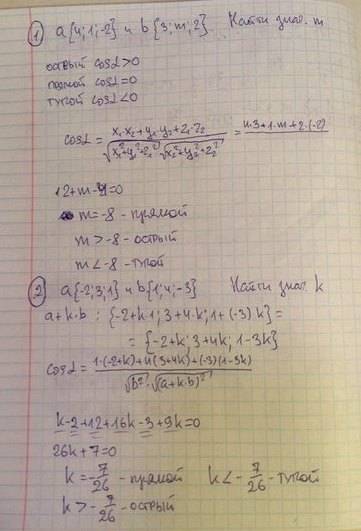 ① a{4;1;-2} и b{3;m;2} Найти знач. m
острый cosα>0
прямой cosα=0
тупой cosα<0
cosα = x₁·x₂+y₁·y₂+z₁·z₂ / √x₁²+y₁²+z₁² · √x₂²+y₂²+z₂² = 4·3+1·m+2·(-2)
12+m-4=0
m=-8 - прямой
m>-8 - острый
m<-8 - тупой
② a{-2;3;1} и b{1;4;-3} Найти знач. k
a+k·b : {-2+k·1; 3+4·k; 1+(-3)k}=
= {-2+k; 3+4k; 1-3k}
cosα= 1·(-2+k)+4(3+4k)+(-3)(1-3k) / √b² · √(a+k·b)²
k-2+12+16k-3+9k=0
26k+7=0
k=-7/26 - прямой k<-7/26 - тупой
k>-7/26 - острый